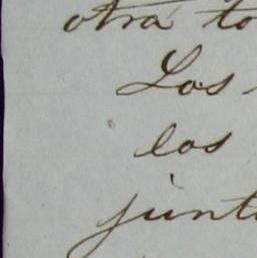 otra to
Los
los
junt